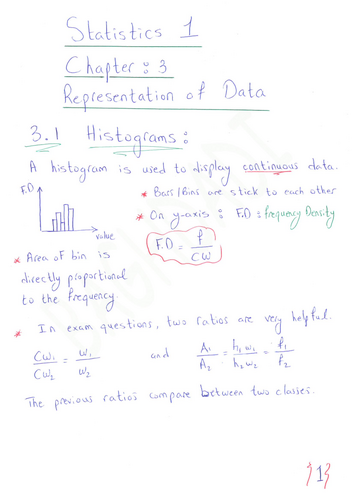 Statistics 1
Chapter : 3
Representation of Data
3.1 Histograms :
A histogram is used to display continuous data.
F.D
value
* Bars/Bins are stick to each other
* On y-axis : F.D = frequency Density
F.D = f / CW
* Area of bin is
directly proportional
to the frequency.
* In exam questions, two ratios are very helpful.
CW₁ / CW₂ = w₁ / w₂ and A₁ / A₂ = h₁ w₁ / h₂ w₂ = f₁ / f₂
The previous ratios compare between two classes.
1